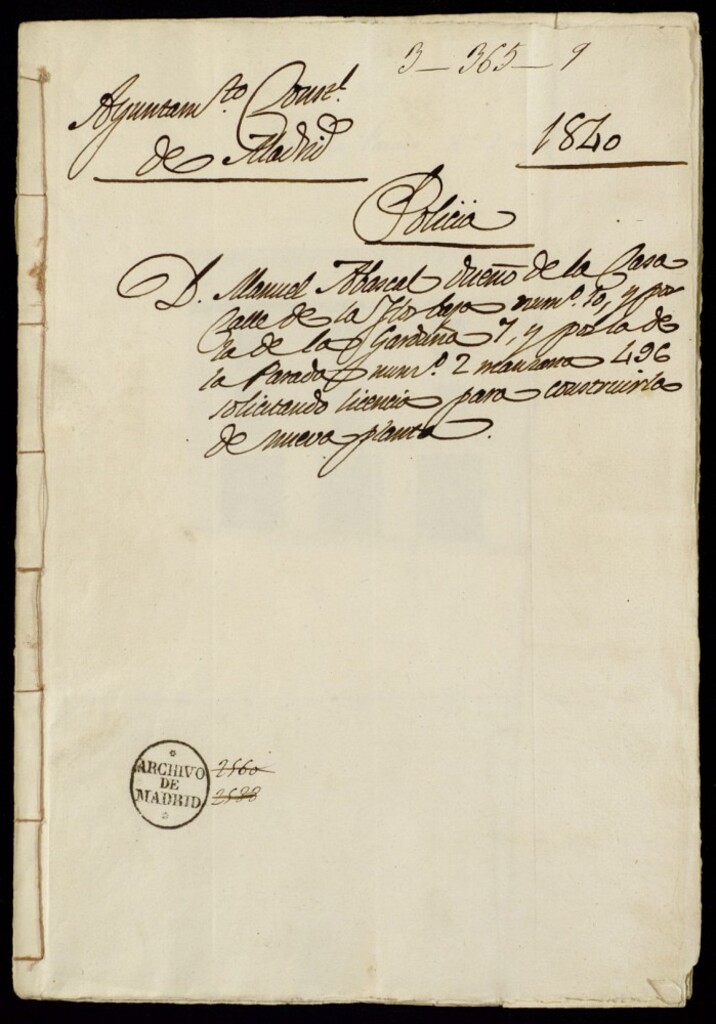 3 - 365 - 9
Ayuntam.to Const.l
de Madrid
1840
Policia
D. Manuel Abascal dueño de la Casa
Calle de la Flor baja num.o 10, y por
la de la Garduña 7, y por la de
la Parada num.o 2 manzana 496
solicitando licencia para construirla
de nueva planta.
ARCHIVO
DE
MADRID
2560
2588